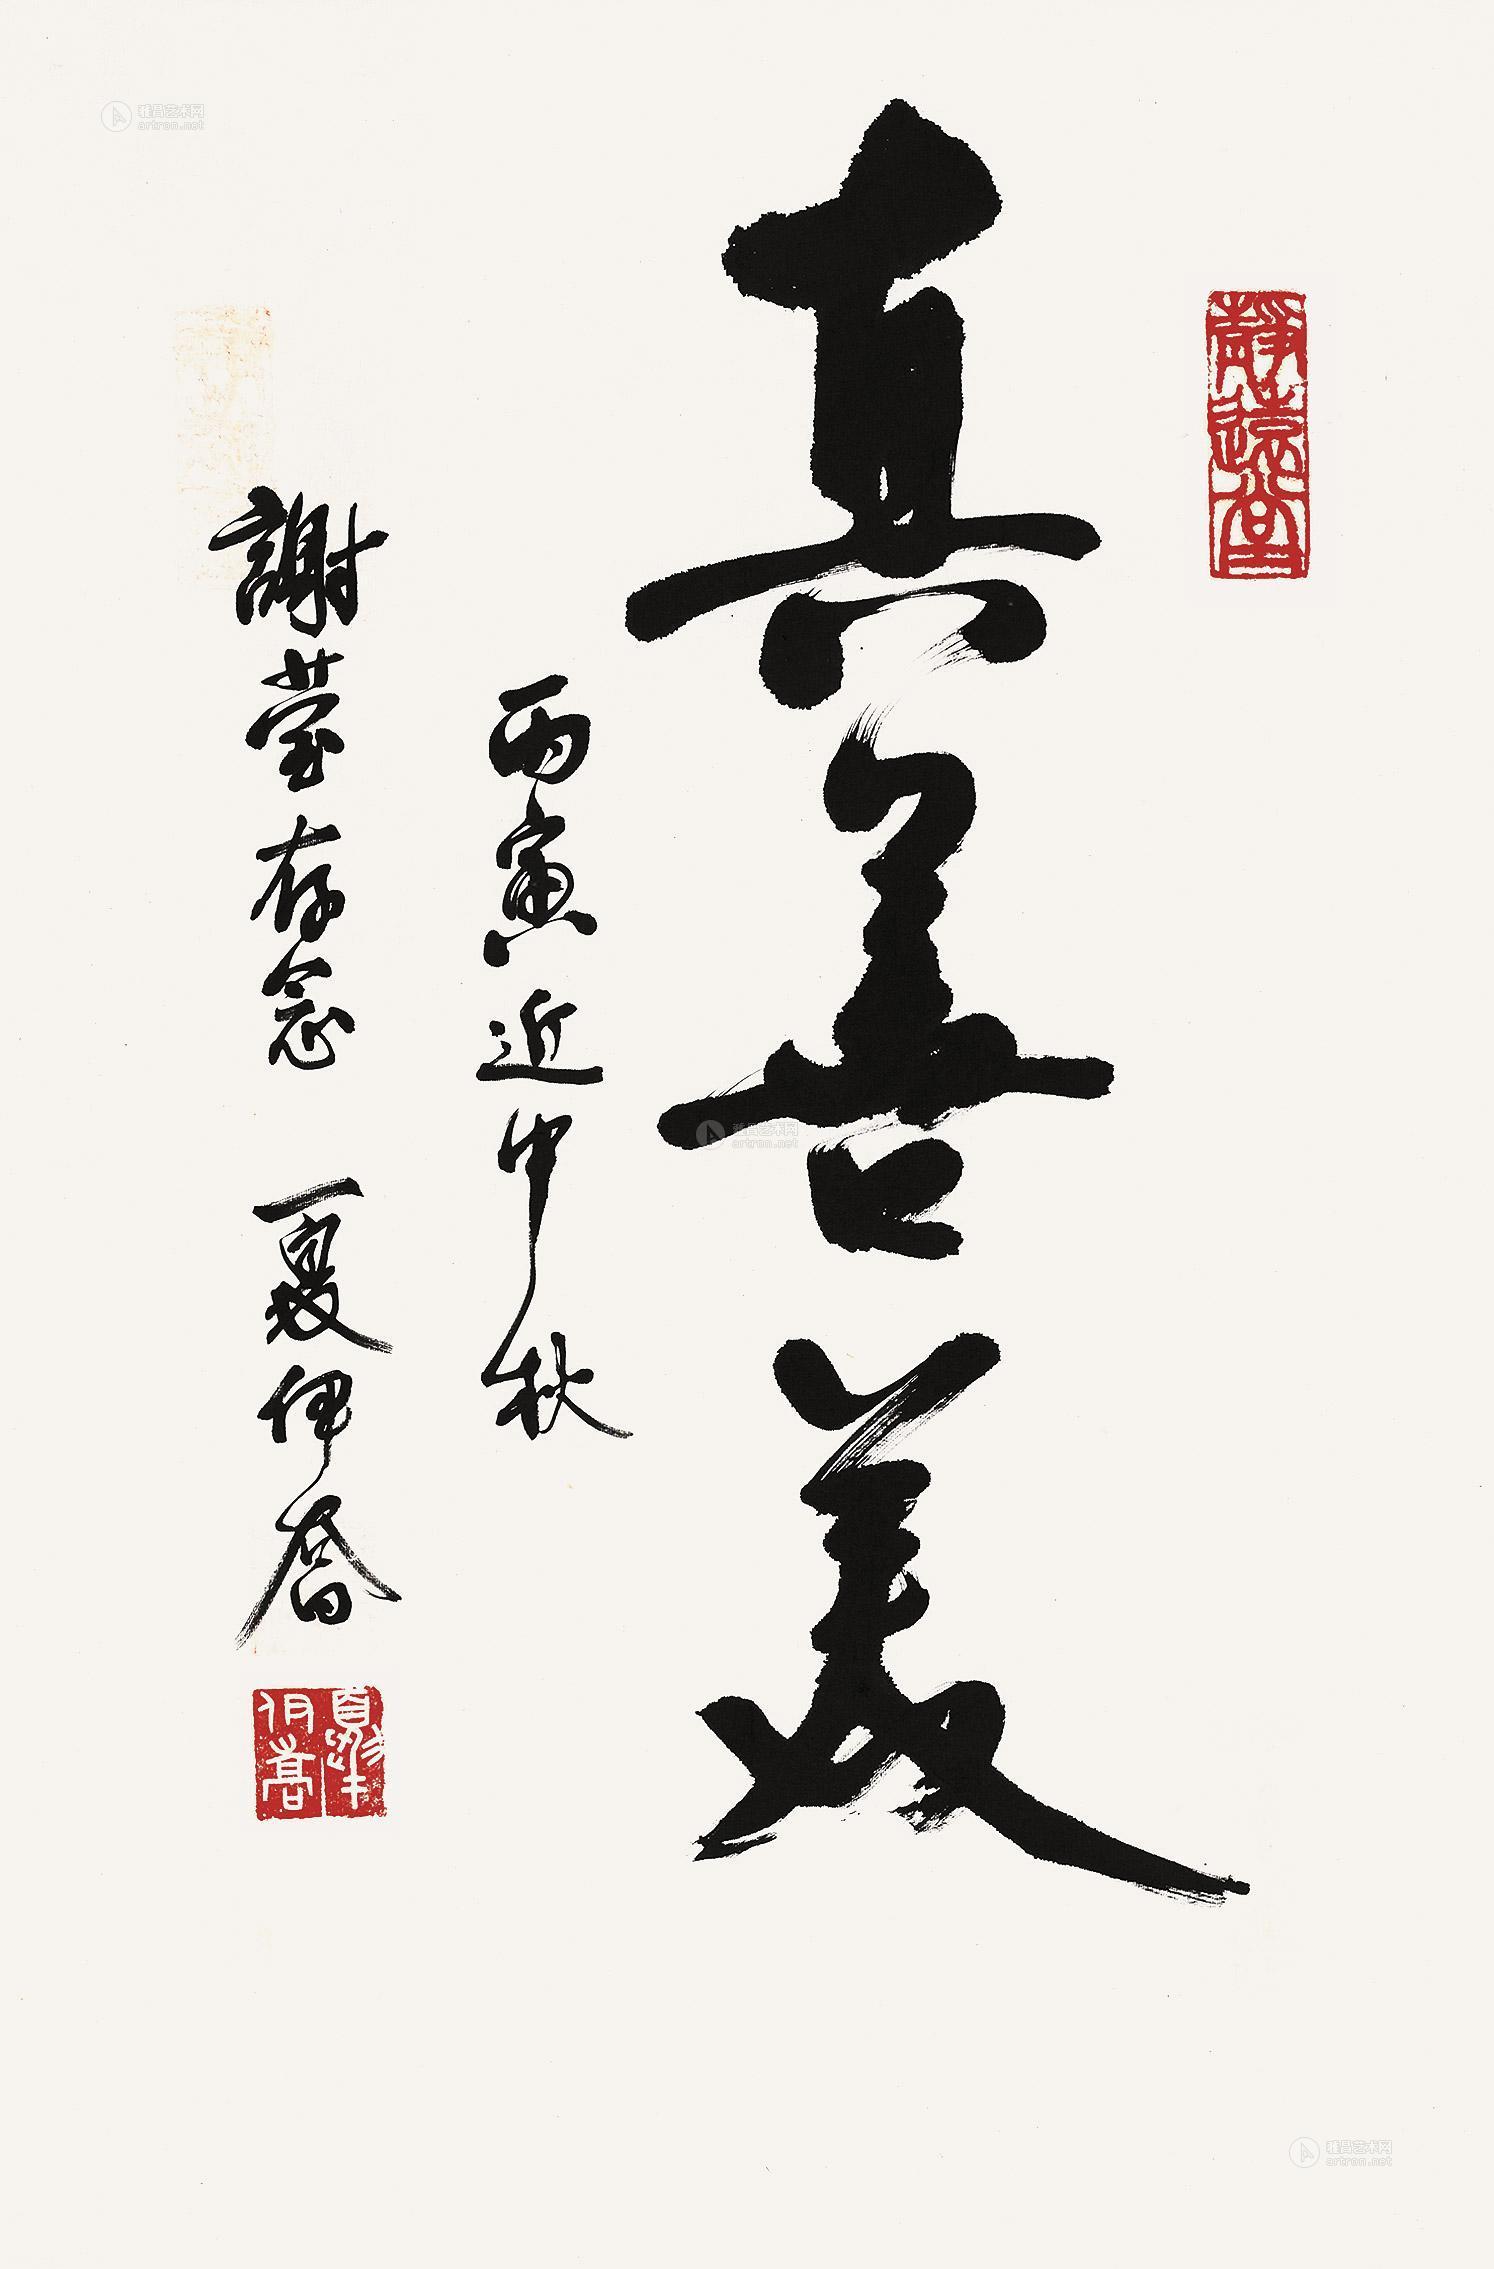 靜遠堂
真善美
丙寅近中秋
謝莹存念 夏伊喬
夏伊喬
雅昌艺术网
artron.net
雅昌艺术网
artron.net
雅昌艺术网
artron.net